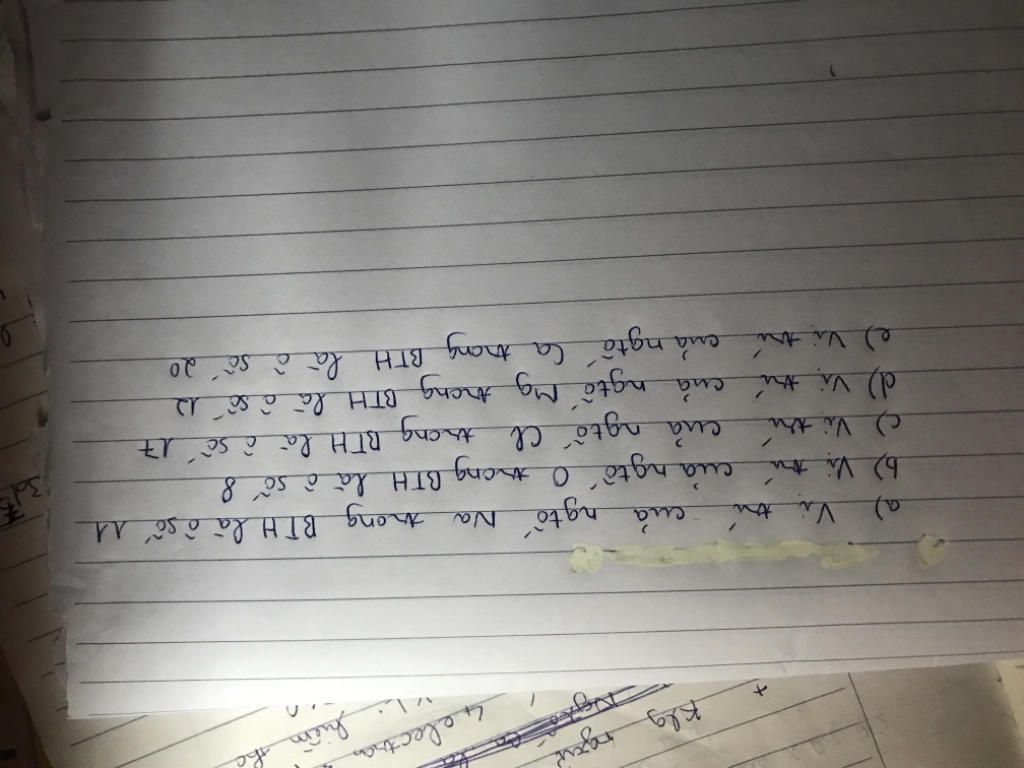 a) Vị trí của ngtố Na trong BTH là ô số 11
b) Vị trí của ngtố O trong BTH là ô số 8
c) Vị trí của ngtố Cl trong BTH là ô số 17
d) Vị trí của ngtố Mg trong BTH là ô số 12
e) Vị trí của ngtố Ca trong BTH là ô số 20
4 electron